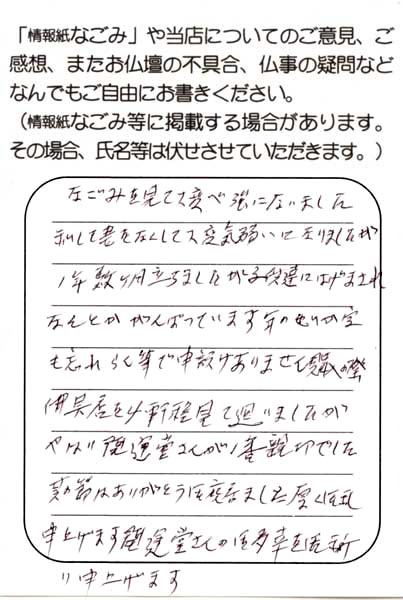 「情報紙なごみ」や当店についてのご意見、ご
感想、またお仏壇の不具合、仏事の疑問など
なんでもご自由にお書きください。
（情報紙なごみ等に掲載する場合があります。
その場合、氏名等は伏せさせていただきます。）
なごみを見て大変べ強になりました
私し妻をなくして大変気弱いになりましたが
1年数ヶ月立ちましたが子供達にはげまされ
なんとかがんばっています年のせいか字
も忘れ で申訳けありません
具店を4軒程見て廻りましたが
やはり 運堂さんが1番 でした
ありがとう 座居ました厚く御礼
申上げます 運堂さんの御多幸を御祈
り申上げます